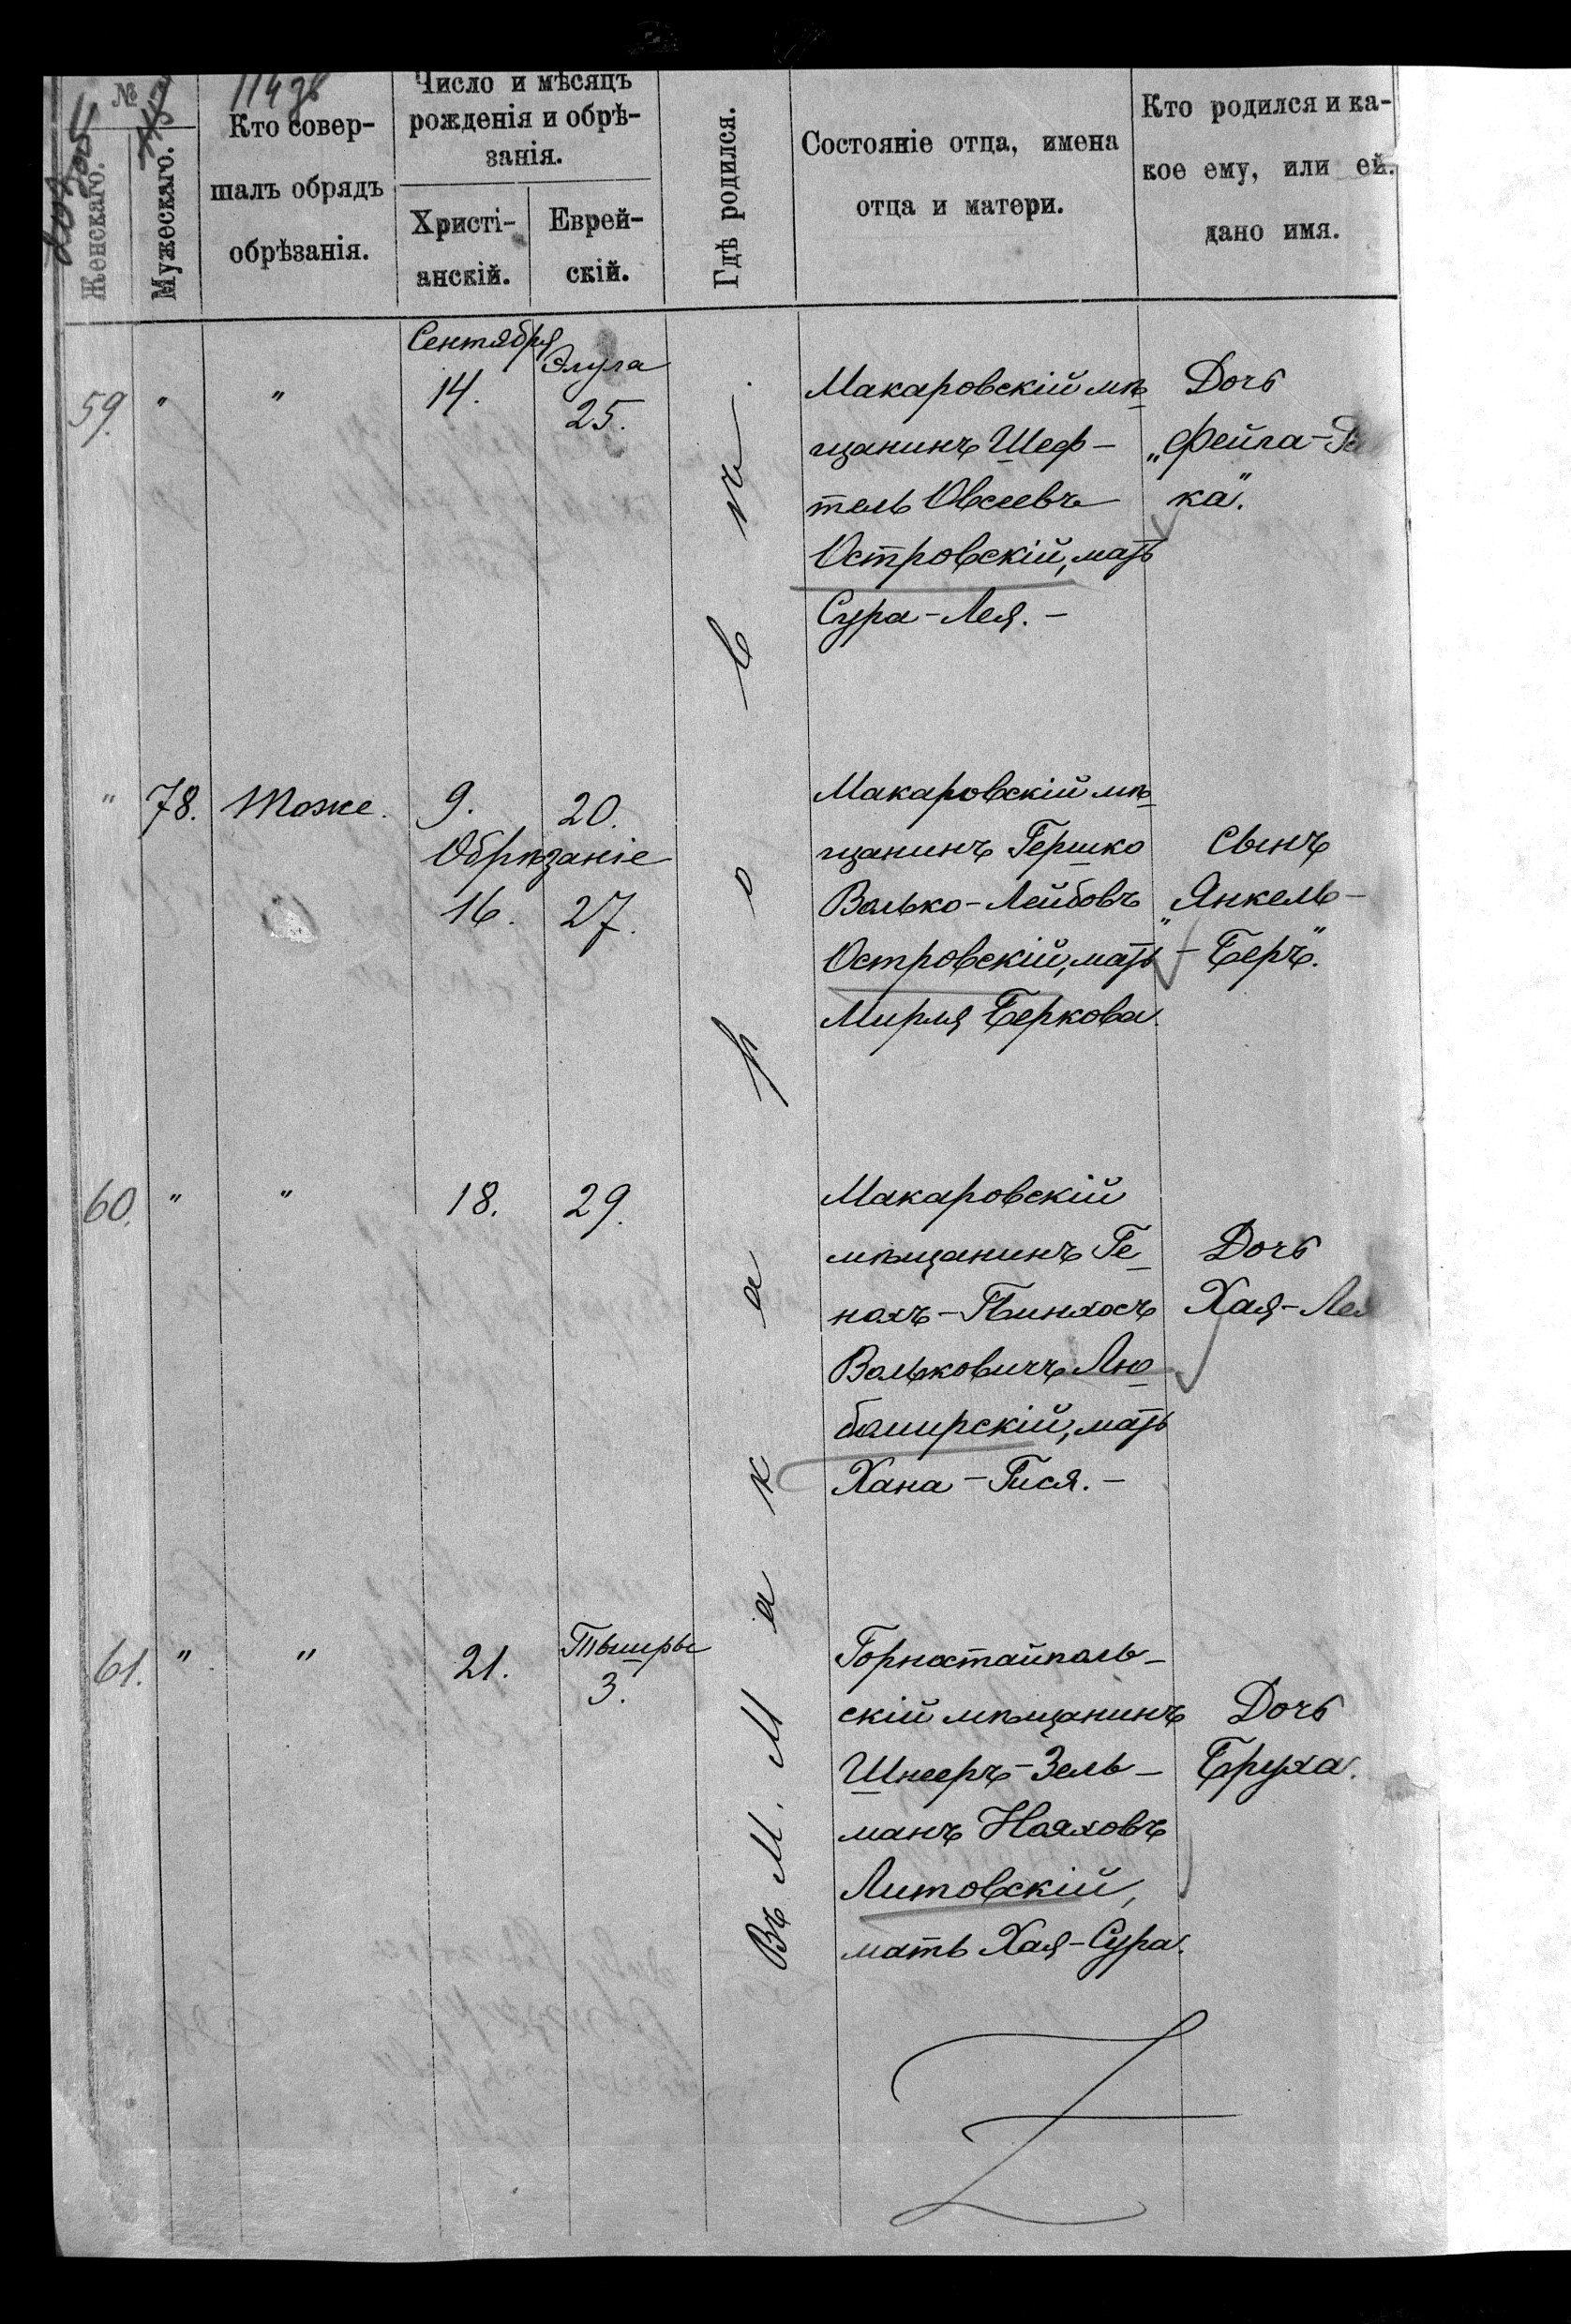 №
114 об
Женскаго.
Мужескаго.
Кто совер-
шалъ обрядъ
обрѣзанія.
Число и мѣсяцъ
рожденія и обрѣ-
занія.
Христі-
анскій.
Еврей-
скій.
Гдѣ родился.
Состояніе отца, имена
отца и матери.
Кто родился и ка-
кое ему, или ей.
дано имя.
Въ М. Макаровѣ.
59. " "
Сентября
14.
Элула
25.
Макаровскій мѣ-
щанинъ Шеф-
тель Овсеевъ
Островскій, мать
Сура-Лея.-
Дочь
„Фейга-
ка".
" 78. Тоже.
9. 20.
Обрѣзаніе
16. 27.
Макаровскій мѣ-
щанинъ Гершко
Волько-Лейбовъ
Островскій, мать
Мирля Беркова.
Сынъ
„Янкель-
-Беръ".
60. " "
18. 29.
Макаровскій
мѣщанинъ Ге-
нахъ-Пинхосъ
Вольковичъ Лю-
бомирскій, мать
Хана-Гися.-
Дочь
Хая-Лея
61. " "
21.
Тышры
3.
Горностайполь-
скій мѣщанинъ
Шнееръ-Зель-
манъ Нояховъ
Литовскій,
мать Хая-Сура.
Дочь
Бруха.